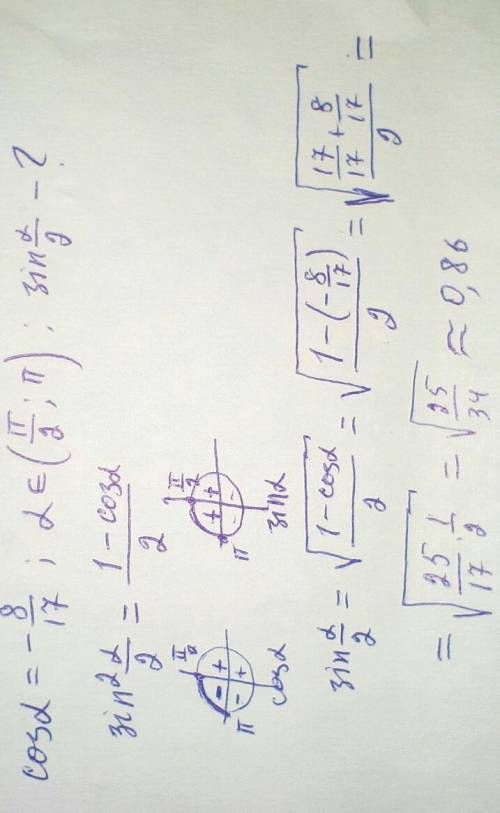 cosα = -8/17; α∈(π/2; π); sin α/2 - ?
sin² α/2 = (1 - cosα)/2
π/2 π - + - + cosα
π/2 π + + - - sinα
sin α/2 = √((1 - cosα)/2) = √((1 - (-8/17))/2) = √((17/17 + 8/17)/2) =
= √(25/17 · 1/2) = √(25/34) ≈ 0,86